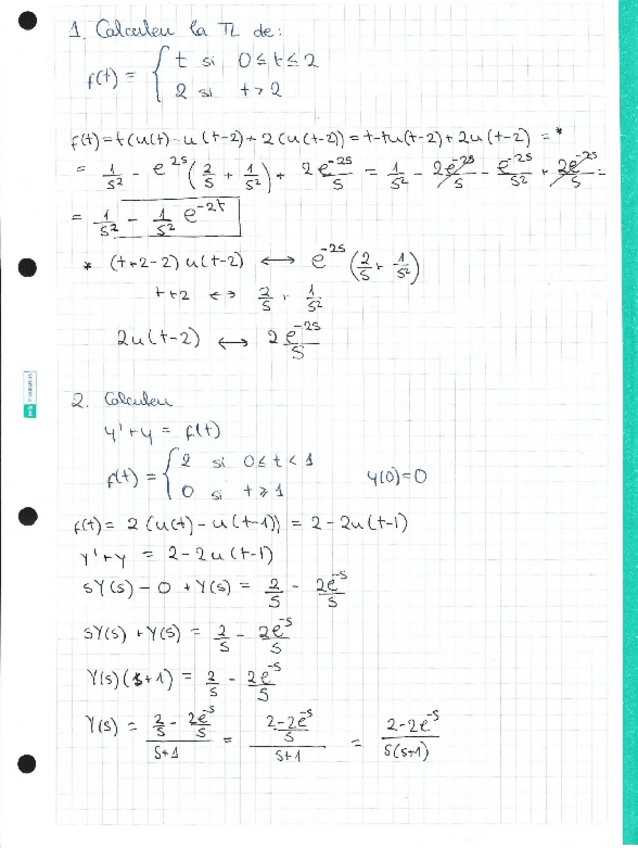 1. Calculeu la TL de:
f(t) = { t si 0 ≤ t ≤ 2
2 si t > 2
f(t) = t(u(t) - u(t-2) + 2(u(t-2)) = t - tu(t-2) + 2u(t-2) = *
= 1/s² - e^2s (2/s + 1/s²) + 2e^-2s/s = 1/s² - 2e^-2s/s - e^-2s/s² + 2e^-2s/s =
= 1/s² - 1/s² e^-2t
* (t+2-2) u(t-2) ↔ e^-2s (2/s + 1/s²)
t+2 ↔ 2/s + 1/s²
2u(t-2) ↔ 2e^-2s/s
2. Calculeu
y' + y = f(t)
f(t) = { 2 si 0 ≤ t < 1
0 si t ≥ 1
y(0)=0
f(t) = 2(u(t) - u(t-1)) = 2 - 2u(t-1)
y' + y = 2 - 2u(t-1)
sY(s) - 0 + Y(s) = 2/s - 2e^-s/s
sY(s) + Y(s) = 2/s - 2e^-s/s
Y(s)(s+1) = 2/s - 2e^-s/s
Y(s) = (2/s - 2e^-s/s)/(s+1) = ((2-2e^-s)/s)/(s+1) = (2-2e^-s)/(s(s+1))